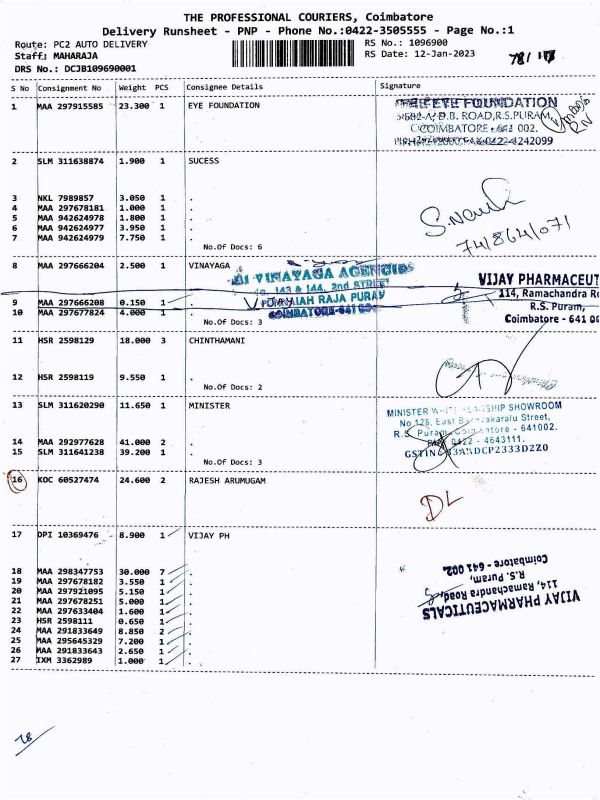 THE PROFESSIONAL COURIERS, Coimbatore
Delivery Runsheet - PNP - Phone No.:0422-3505555 - Page No.:1
Route: PC2 AUTO DELIVERY
RS No.: 1096900
Staff: MAHARAJA
RS Date: 12-Jan-2023
DRS No.: DCJB109690001
78/
S No Consignment No Weight PCS Consignee Details Signature
1 MAA 297915585 23.300 1 EYE FOUNDATION
EYE FOUNDATION
582-A/D.B. ROAD,R.S.PURAM,
COIMBATORE - 641 002.
2 SLM 311638874 1.900 1 SUCESS
3 NKL 7989857 3.050 1 .
4 MAA 297678181 1.000 1 .
5 MAA 942624978 1.800 1 .
6 MAA 942624977 3.950 1 .
7 MAA 942624979 7.750 1 .
No.Of Docs: 6
8 MAA 297666204 2.500 1 VINAYAGA
VINAYAGA AGENCIES
143 & 144, 2nd STREET
RAJA PURAM
COIMBATORE-641
VIJAY PHARMACEUT
114, Ramachandra Ro
R.S. Puram,
Coimbatore - 641 00
9 MAA 297666208 0.150 1 .
10 MAA 297677824 4.000 1 .
No.Of Docs: 3
11 HSR 2598119 18.000 3 CHINTHAMANI
12 HSR 2598129 9.550 1 .
No.Of Docs: 2
13 SLM 311620290 11.650 1 MINISTER
MINISTER WHITE FLAGSHIP SHOWROOM
No.128, East Street,
R.S. Puram, Coimbatore - 641002.
0422 - 4643111.
GSTIN 33AADCP2333D2Z0
14 MAA 292977628 41.000 2 .
15 SLM 311641238 39.200 1 .
No.Of Docs: 3
16 KOC 60527474 24.600 2 RAJESH ARUMUGAM
DL
17 DPI 10369476 8.900 1 VIJAY PH
VIJAY PHARMACEUTICALS
114, Ramachandra Road,
R.S. Puram,
Coimbatore - 641 002.
18 MAA 298347753 30.000 7 .
19 MAA 297678182 3.550 1 .
20 MAA 297921095 5.150 1 .
21 MAA 297678251 5.000 1 .
22 MAA 297633404 1.600 1 .
23 HSR 2598111 0.650 1 .
24 MAA 291833649 8.850 2 .
25 MAA 295645329 7.200 1 .
26 MAA 291833643 2.650 1 .
27 IXM 3362989 1.000 1 .
78